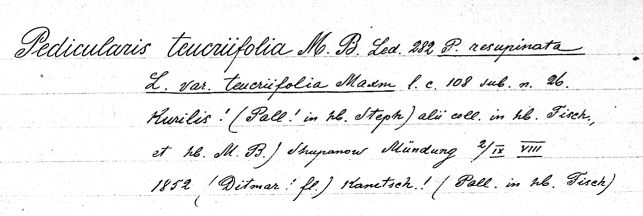 Pedicularis teucriifolia M. B. Led. 282 P. resupinata
L. var. teucriifolia Maxm l. c. 108 sub. n. 26.
Kurilis! (Pall! in hb. Steph) alii coll. in hb. Fisch.,
et hb. M. B.) Shupanow Mündung 2/IX VIII
1852 (Ditmar! fl.) Kamtsch.! (Pall. in hb. Fisch)